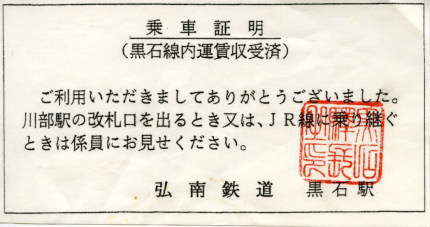 乗車証明
(黒石線内運賃収受済)
ご利用いただきましてありがとうございました。
川部駅の改札口を出るとき又は、JR線に乗り継ぐ
ときは係員にお見せください。
弘南鉄道 黒石駅